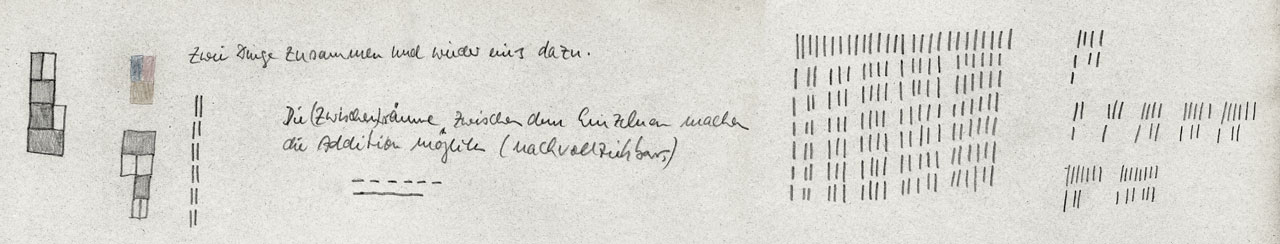 Zwei Dinge zusammen und wieder eins dazu.
Die (Zwischen)räume zwischen dem Einzelnen machen
die Addition möglich (nachvollziehbar)